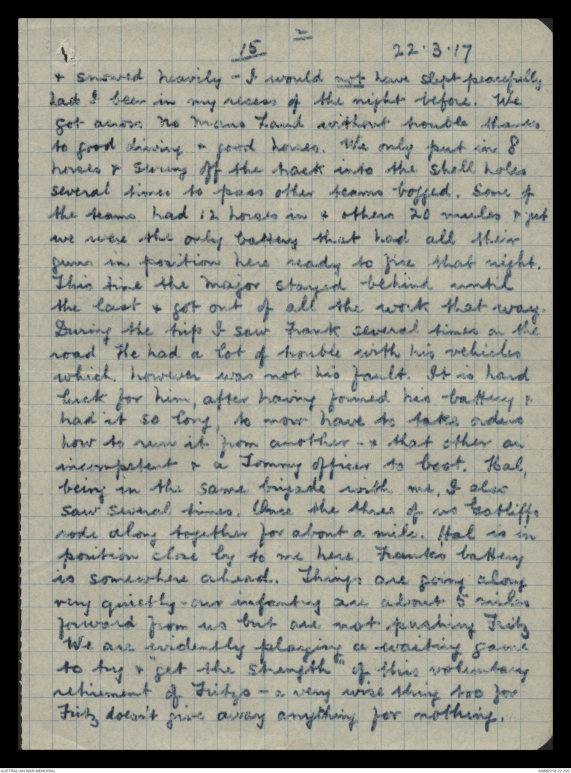 15
22.3.17
& snowed heavily - I would not have slept peacefully
had I been in my recess of the night before. We
got across No Mans Land without trouble thanks
to good driving & good horses. We only put in 8
horses & swung off the track into the shell holes
several times to pass other teams bogged. Some of
the teams had 12 horses in & others 20 mules & yet
we were the only battery that had all their
guns in position here ready to fire that night.
This time the Major stayed behind until
the last & got out of all the work that way.
During the trip I saw Frank several times on the
road He had a lot of trouble with his vehicles
which, however was not his fault. It is hard
luck for him, after having formed his battery &
had it so long, to now have to take orders
how to run it from another - & that other an
incompetent & a Tommy officer to boot. Hal,
being in the same brigade with me, I also
saw several times. Once the three of us
rode along together for about a mile. Hal is in
position close by to me here. Frank's battery
is somewhere ahead. Things are going along
very quietly - our infantry are about 5 miles
forward from us but are not pushing Fritz
We are evidently playing a waiting game
to try & "get the strength" of this voluntary
retirement of Fritzs - a very wise thing too for
Fritz doesn't give away anything for nothing.
AUSTRALIAN WAR MEMORIAL